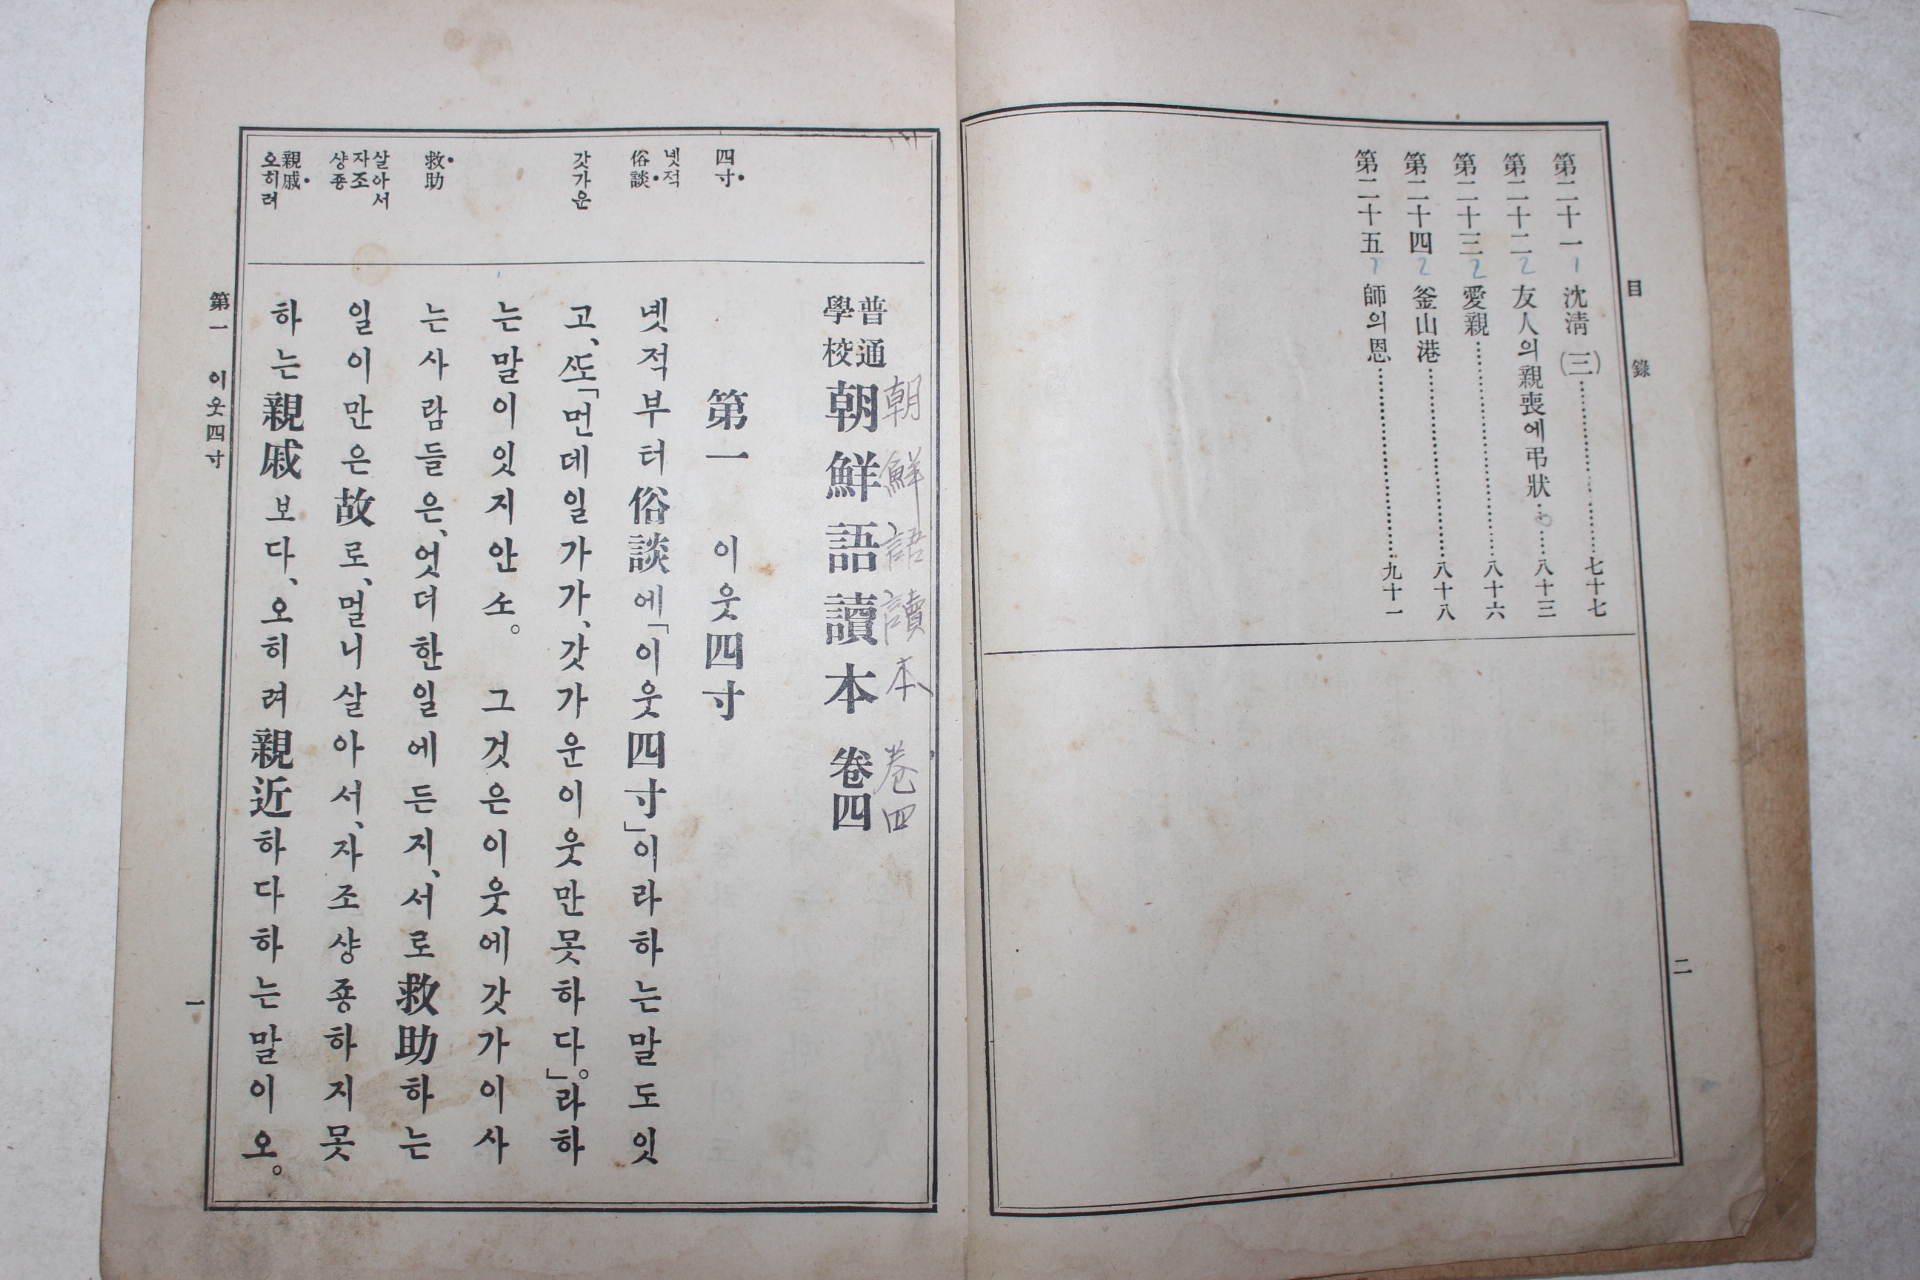 目錄
第二十一 沈淸(三)……………七十七
第二十二 友人의親喪에弔狀……八十三
第二十三 愛親……………八十六
第二十四 釜山港……………八十八
第二十五 師의恩……………九十一
二
朝鮮語讀本 卷四
普通學校 朝鮮語讀本 卷四
第一 이웃四寸
四寸
녯적
俗談
갓가운
救助
살아서
자조
샹죵
親戚
오히려
녯적부터俗談에「이웃四寸」이라하는말도잇
고、ᄯᅩ「먼데일가가、갓가운이웃만못하다。」라하
는말이잇지안소。 그것은이웃에갓가이사
는사람들은、엇더한일에든지、서로救助하는
일이만은故로、멀니살아서、자조샹죵하지못
하는親戚보다、오히려親近하다하는말이오。
第一 이웃四寸
一